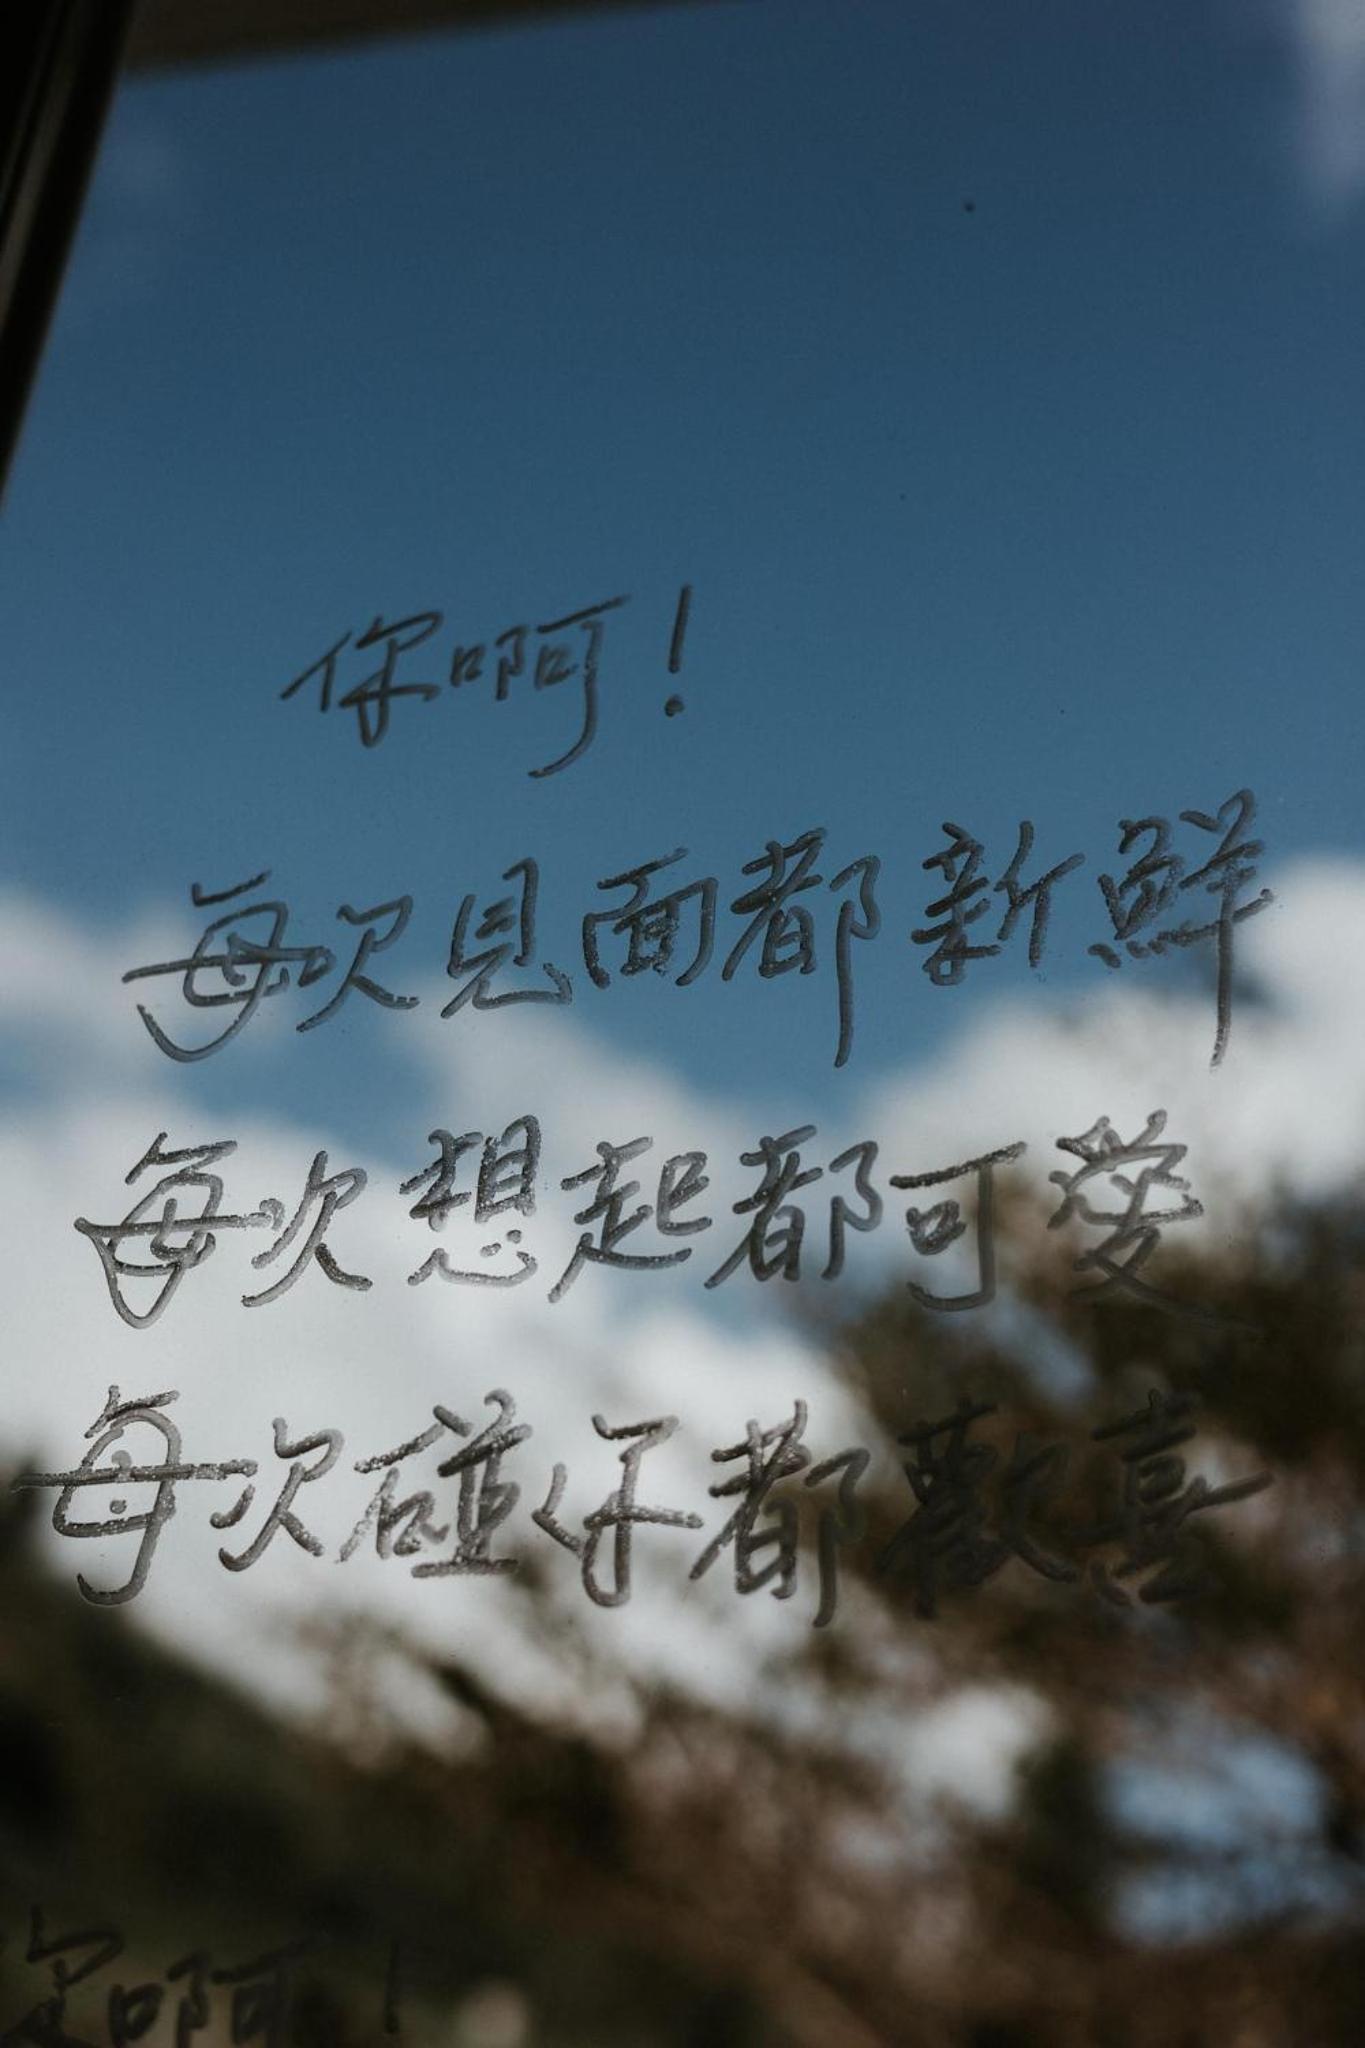 你啊！
每次見面都新鮮
每次想起都可愛
每次碰好都歡喜
啊！